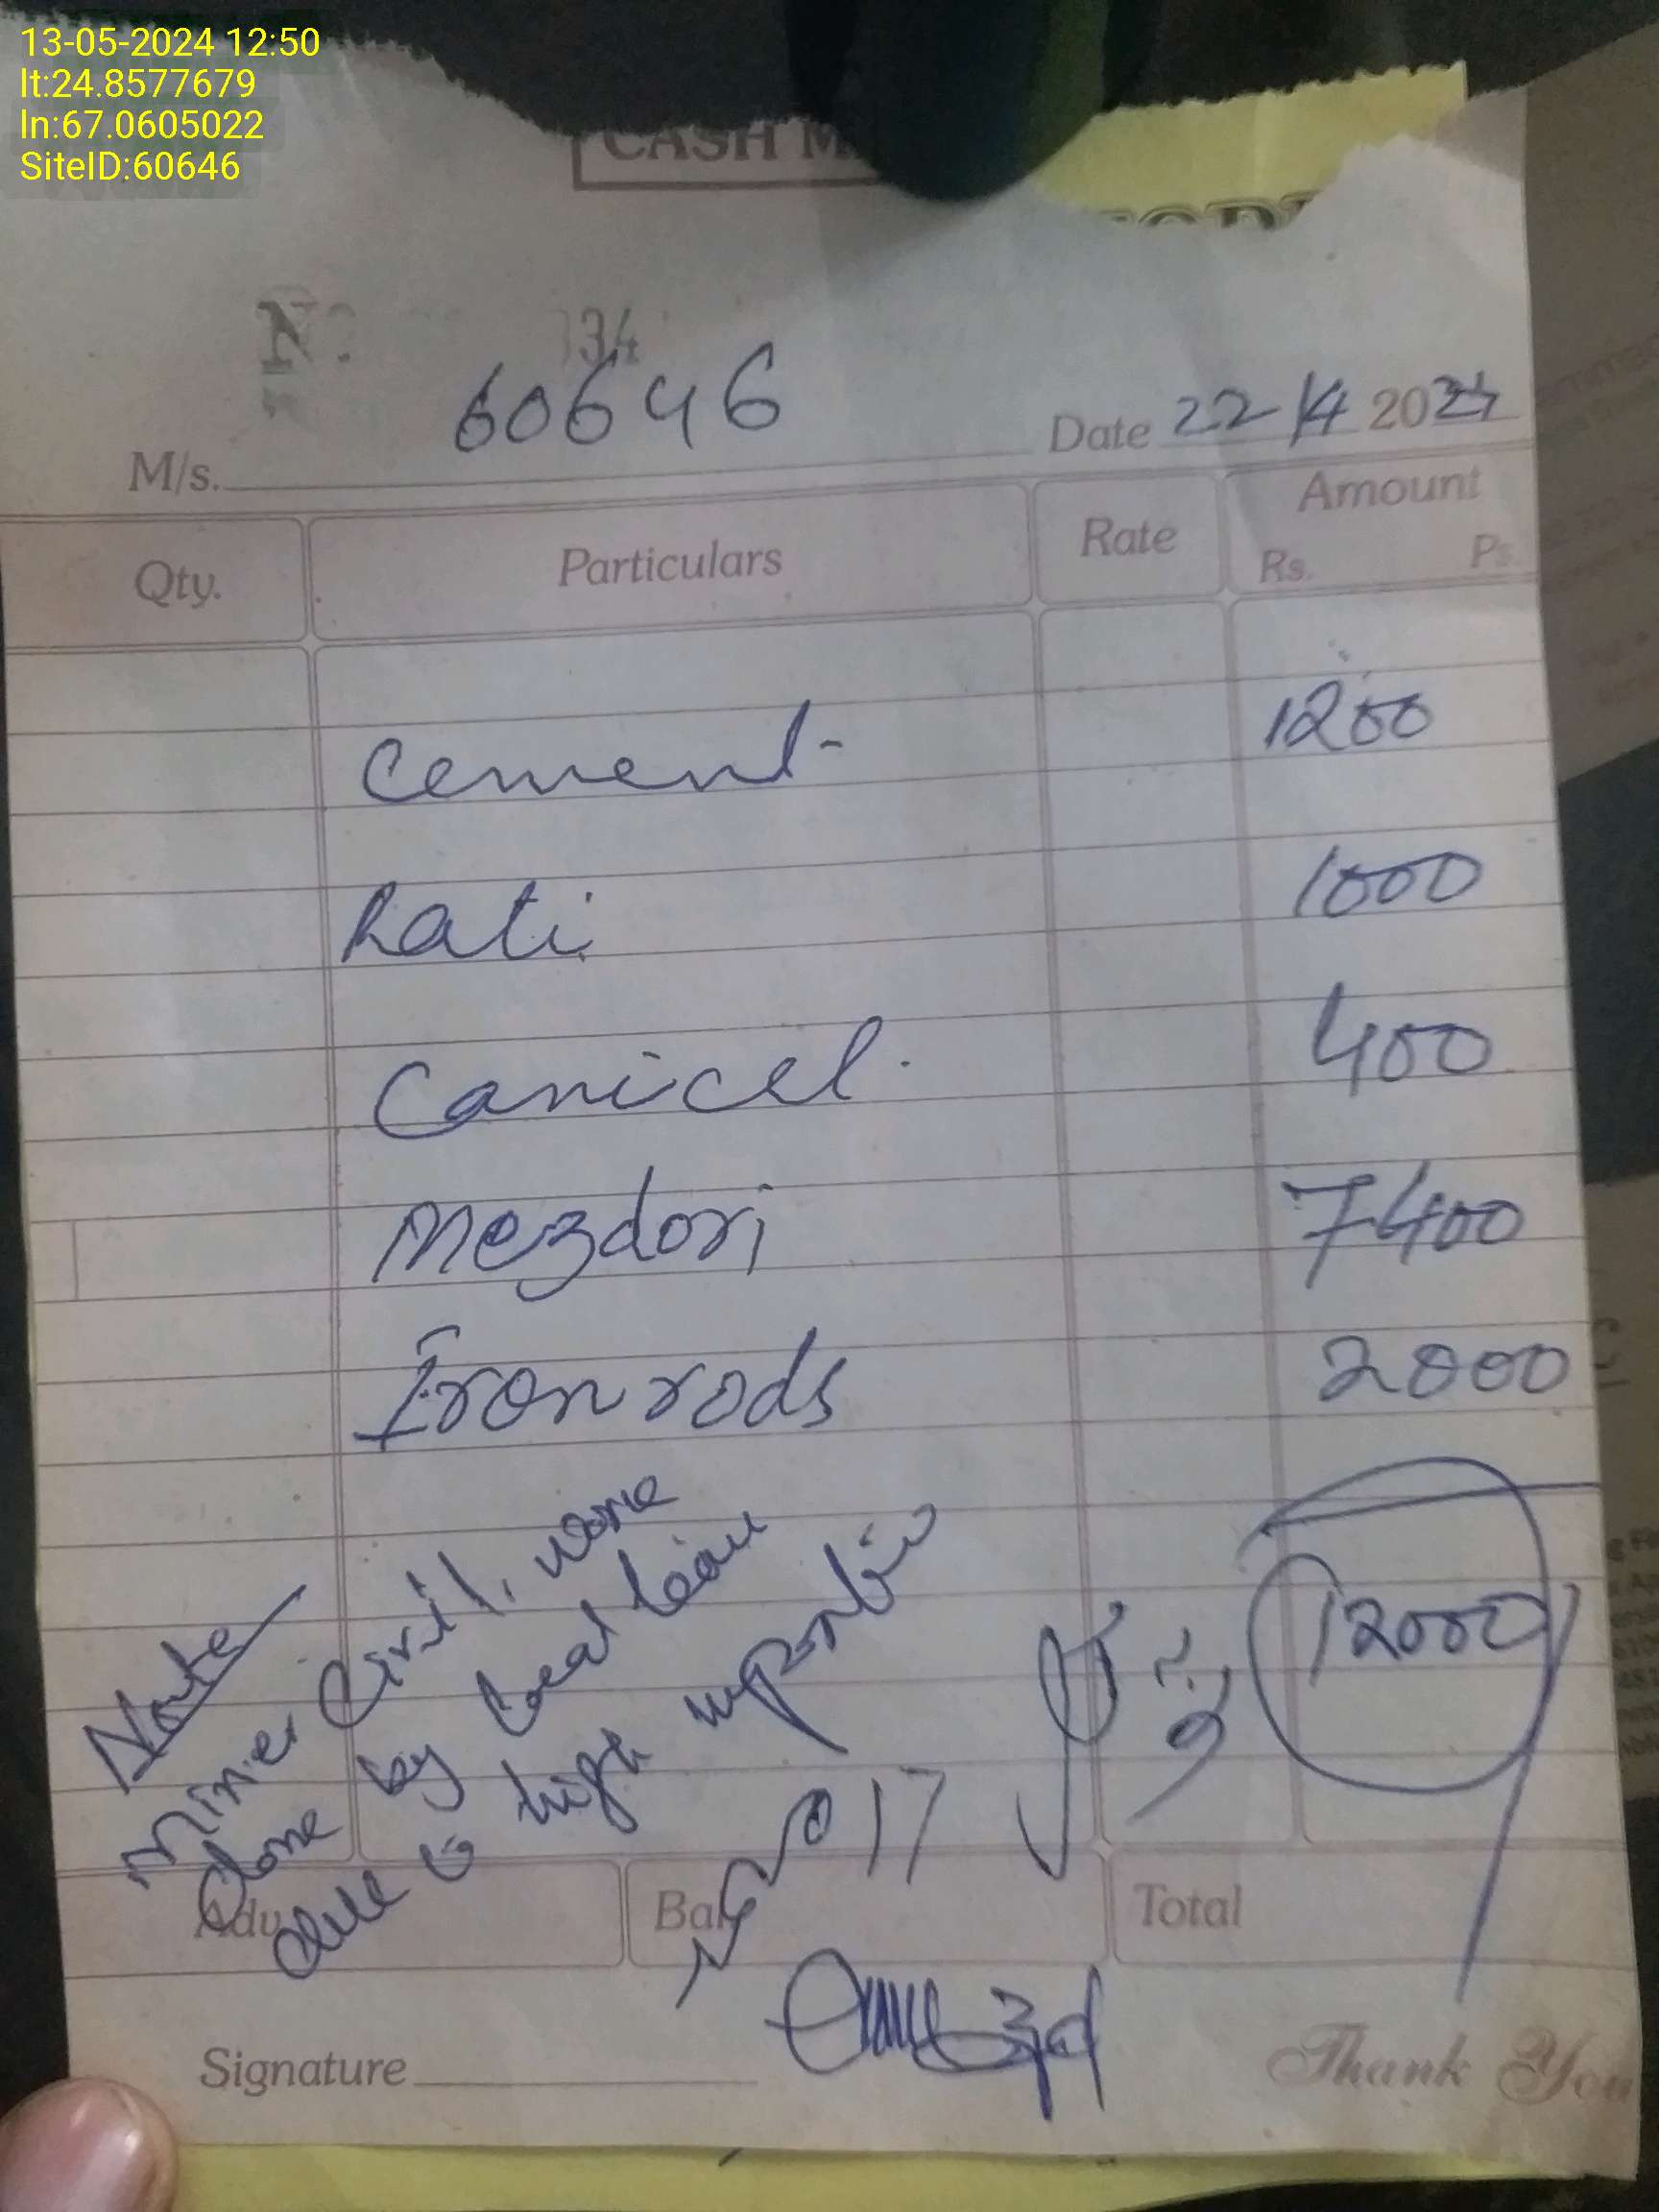 13-05-2024 12:50
lt:24.8577679
ln:67.0605022
SiteID:60646
CASH M
Nº 34
M/s. 60646 Date 22/4 2024
Qty. Particulars Rate Amount
Rs. Ps.
Cement 1200
Rati 1000
Canicel 400
Mezdori 7400
Iron rods 2000
12000
Note
Miner Civil work
done by local team
due to high
17
Adv. Bal. Total
Signature
Thank You